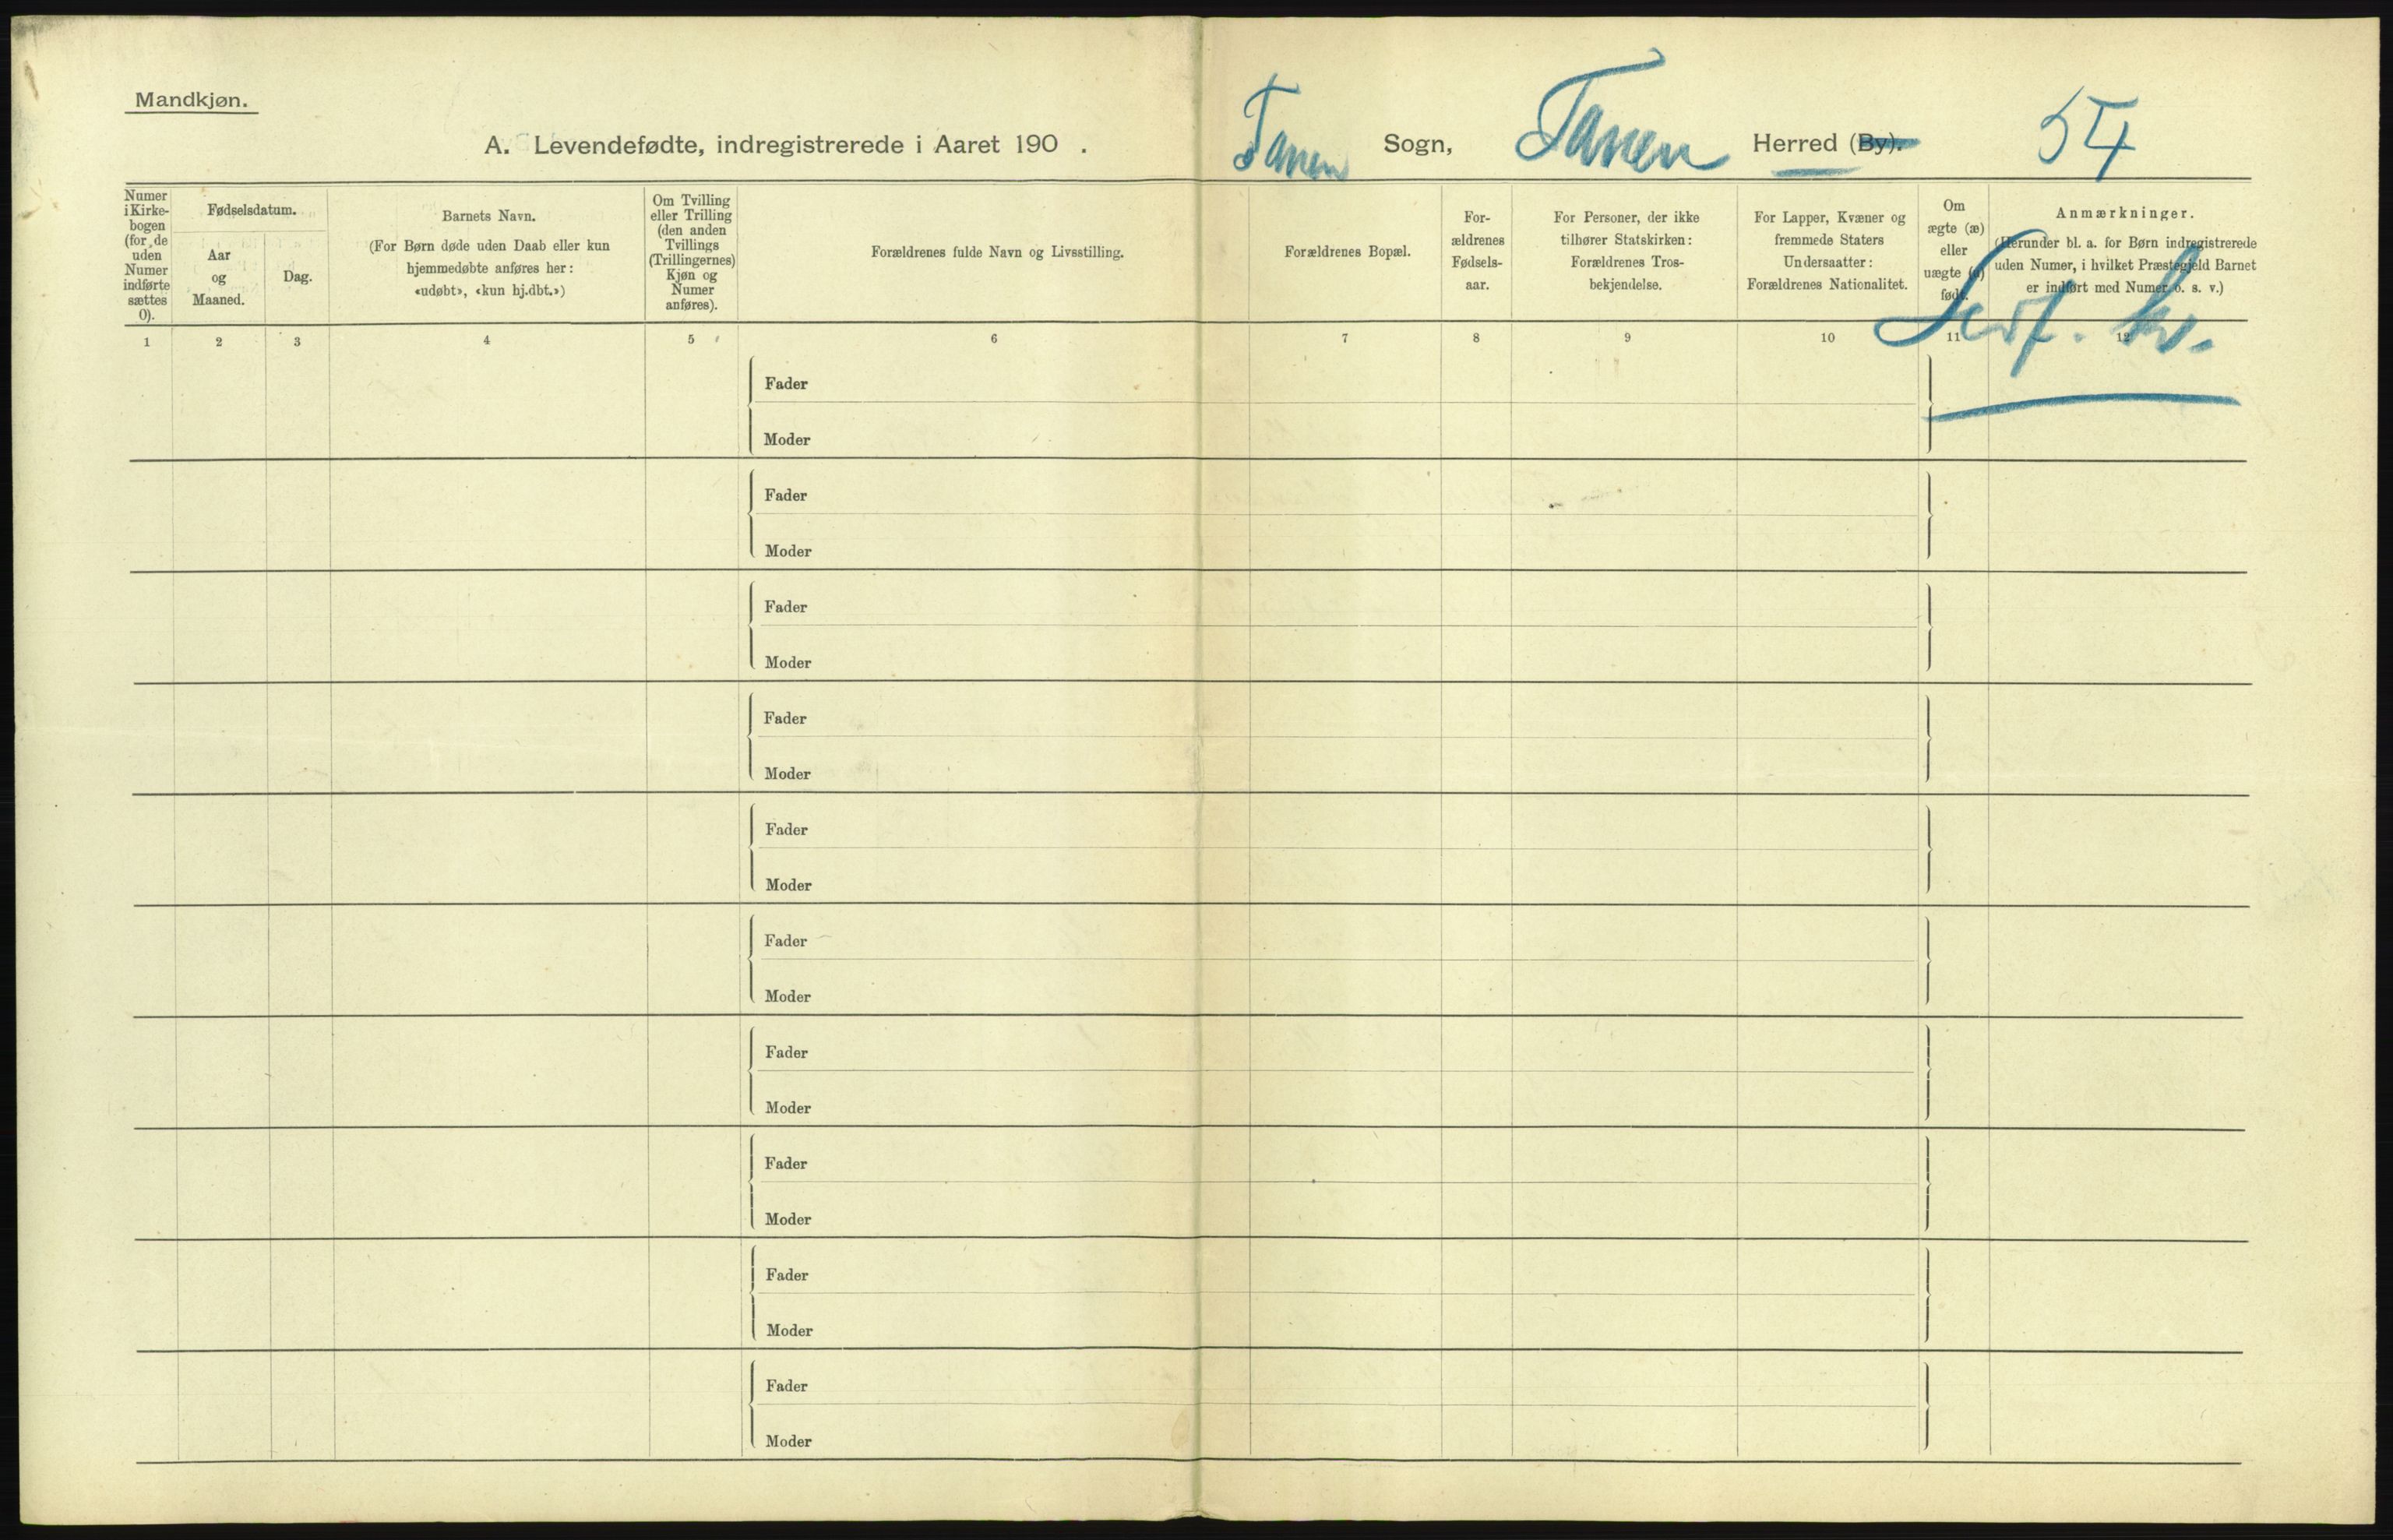 Mandkjøn.
A. Levendefødte, indregistrerede i Aaret 190 . Tanen Sogn, Tanen Herred (By). 54
Numer i Kirke- bogen (for de uden Numer indførte sættes 0).
Fødselsdatum.
Aar og Maaned.
Dag.
Barnets Navn.
(For Børn døde uden Daab eller kun
hjemmedøbte anføres her:
«udøbt», «kun hj.dbt.»)
Om Tvilling
eller Trilling
(den anden
Tvillings
(Trillingernes)
Kjøn og
Numer
anføres).
Forældrenes fulde Navn og Livsstilling.
Forældrenes Bopæl.
For-
ældrenes
Fødsels-
aar.
For Personer, der ikke
tilhører Statskirken:
Forældrenes Tros-
bekjendelse.
For Lapper, Kvæner og
fremmede Staters
Undersaatter:
Forældrenes Nationalitet.
Om
ægte (æ)
eller
uægte (u)
født.
Anmærkninger.
(Herunder bl. a. for Børn indregistrerede
uden Numer, i hvilket Præstegjeld Barnet
er indført med Numer o. s. v.)
1 2 3 4 5 6 7 8 9 10 11 12
Fader
Moder
Fader
Moder
Fader
Moder
Fader
Moder
Fader
Moder
Fader
Moder
Fader
Moder
Fader
Moder
Fader
Moder
Fader
Moder